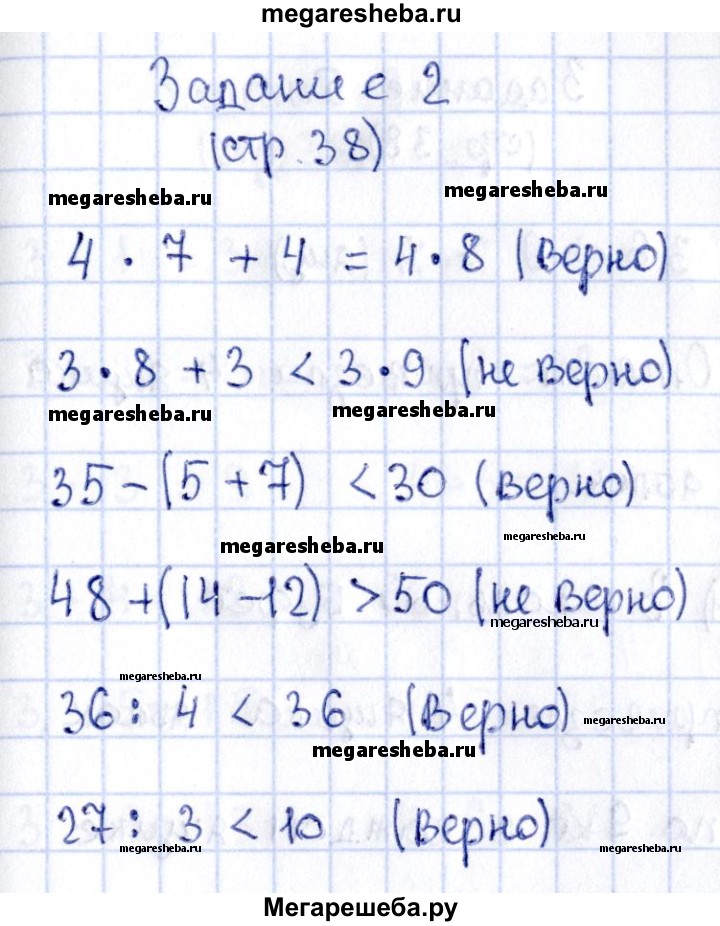 megaresheba.ru
Задание 2
(стр. 38)
megaresheba.ru megaresheba.ru
4 · 7 + 4 = 4 · 8 (верно)
3 · 8 + 3 < 3 · 9 (не верно)
megaresheba.ru megaresheba.ru
35 - (5 + 7) < 30 (верно)
megaresheba.ru
megaresheba.ru
48 + (14 - 12) > 50 (не верно)
megaresheba.ru
megaresheba.ru
36 : 4 < 36 (верно) megaresheba.ru
megaresheba.ru
27 : 3 < 10 (верно)
megaresheba.ru megaresheba.ru megaresheba.ru
Мегарешеба.ру